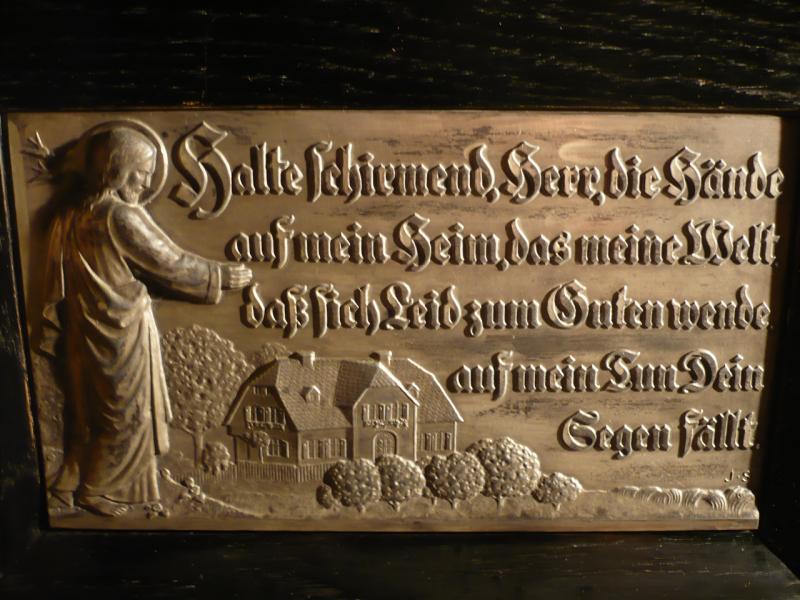 Halte schirmend, Herr, die Hände
auf mein Heim, das meine Welt
daß sich Leid zum Guten wende
auf mein Tun Dein
Segen fällt.
J S